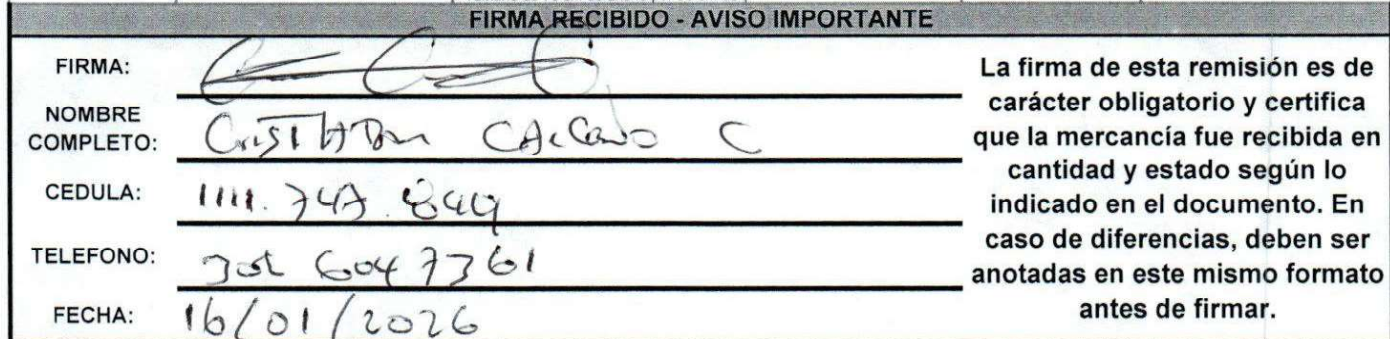 FIRMA RECIBIDO - AVISO IMPORTANTE
FIRMA:
NOMBRE
COMPLETO: C
CEDULA: 1111.747.849
TELEFONO: 6047361
FECHA: 16/01/2026
La firma de esta remisión es de
carácter obligatorio y certifica
que la mercancía fue recibida en
cantidad y estado según lo
indicado en el documento. En
caso de diferencias, deben ser
anotadas en este mismo formato
antes de firmar.